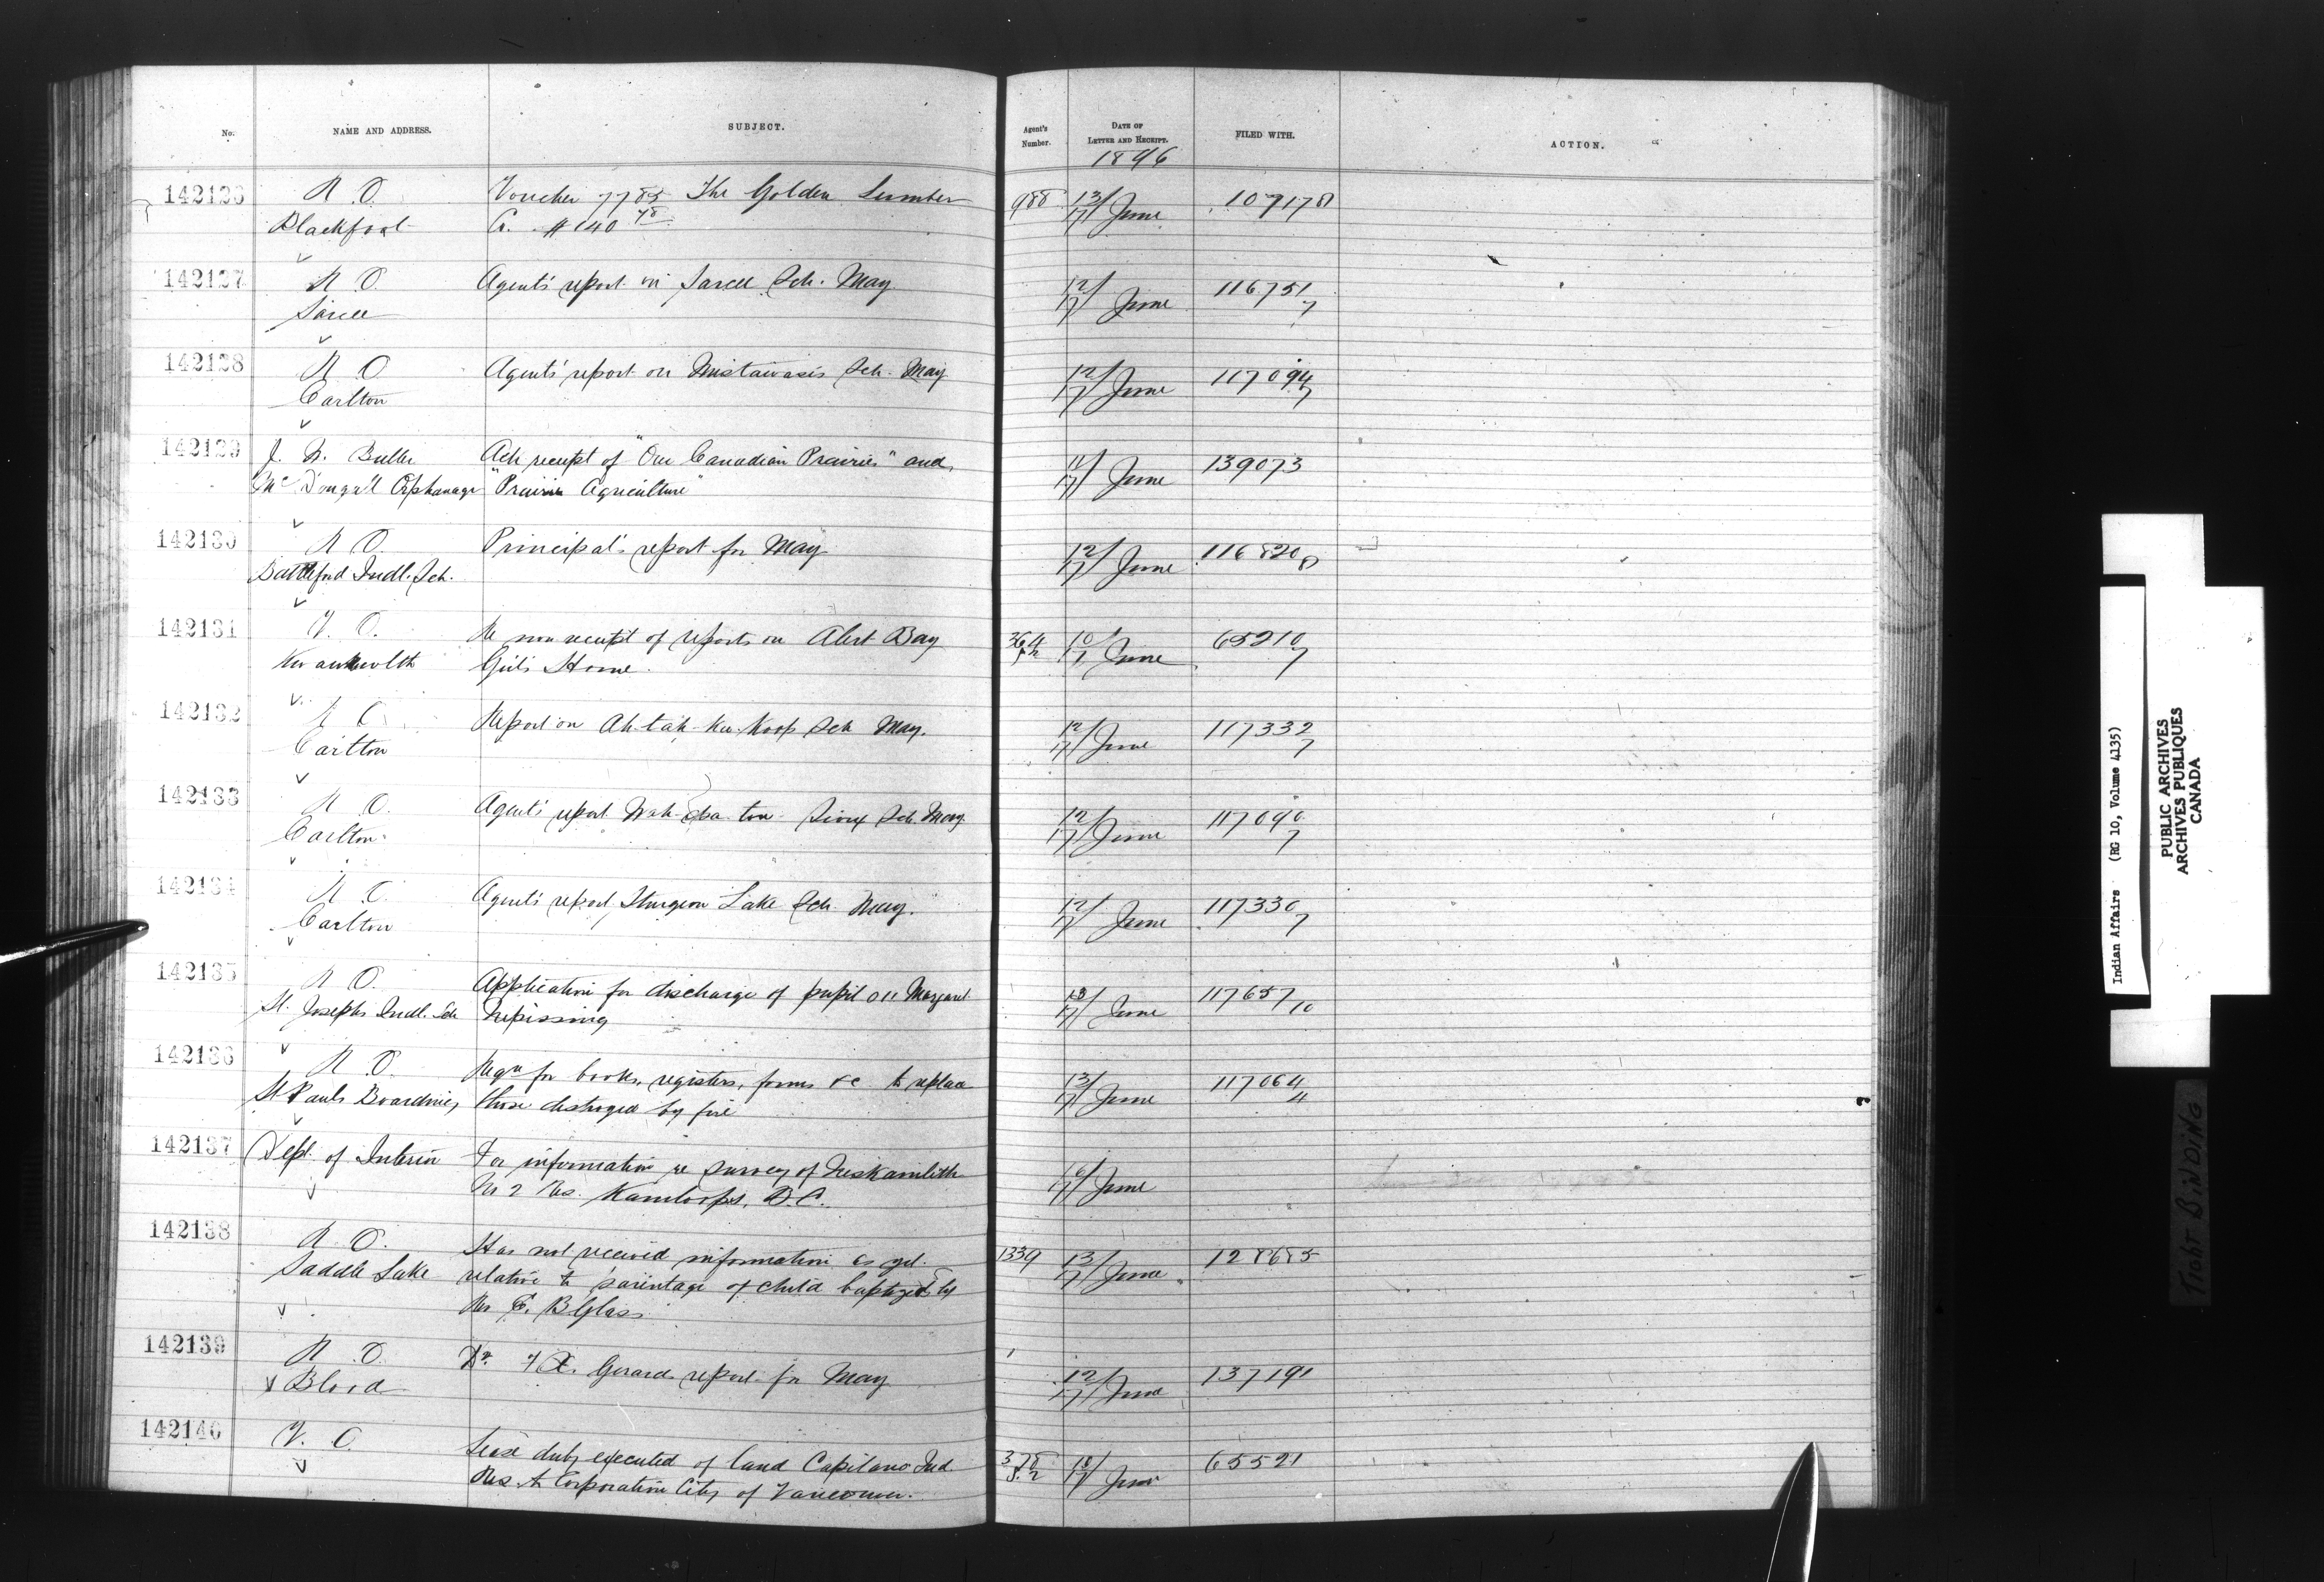 No. NAME AND ADDRESS. SUBJECT. Agent's Number. DATE OF LETTER AND RECEIPT. FILED WITH. ACTION.
1896
142126 R. O. Voucher 7785 The Golden Lumber 988 13/17 June 109178
Blackfoot Co. $140 78
142127 R O. Agent's report on Sarcee Sch. May 12/17 June 116751 7
Sarcee
142128 R O Agent's report on Mistawasis Sch. May 12/17 June 117094 7
Carlton
142129 J. W. Butler Ack receipt of "Our Canadian Prairies" and 11/17 June 139073
McDougall Orphanage "Prairie Agriculture"
142130 R O. Principal's report for May 12/17 June 116820 8
Battleford Indl. Sch.
142131 V. O. Re non receipt of reports on Alert Bay 364 10/17 June 65210 7
Kwawkewlth Girls Home.
142132 R O Report on Ah-tah-Ku-Koop Sch May. 12/17 June 117332 7
Carlton
142133 R O. Agent's report Wah-spa-ton Sioux Sch. May 12/17 June 117090 7
Carlton
142134 R O. Agent's report Sturgeon Lake Sch. May. 12/17 June 117330 7
Carlton
142135 R O. Application for discharge of pupil 011 Margaret 13/17 June 117657 10
St. Josephs Indl. Sch Nipissing
142136 R O. Reqn for books, registers, forms &c to replace 13/17 June 117064 4
St Pauls Boarding those destroyed by fire
142137 Dept. of Interior For information re survey of Neskamlith 16/17 June
No 2 Res. Kamloops, B.C.
142138 R O. Has not received information as yet 1339 13/17 June 128685
Saddle Lake relative to parentage of child baptized by
Rev E. B Glass
142139 R O. Dr. F X. Girard report for May 12/17 June 137191
Blood
142140 V. O. Lease duly executed of land Capilano Ind. 378 10/17 June 65521
Res to Corporation City of Vancouver.
Indian Affairs (RG 10, Volume 4135)
PUBLIC ARCHIVES
ARCHIVES PUBLIQUES
CANADA
TIGHT BINDING